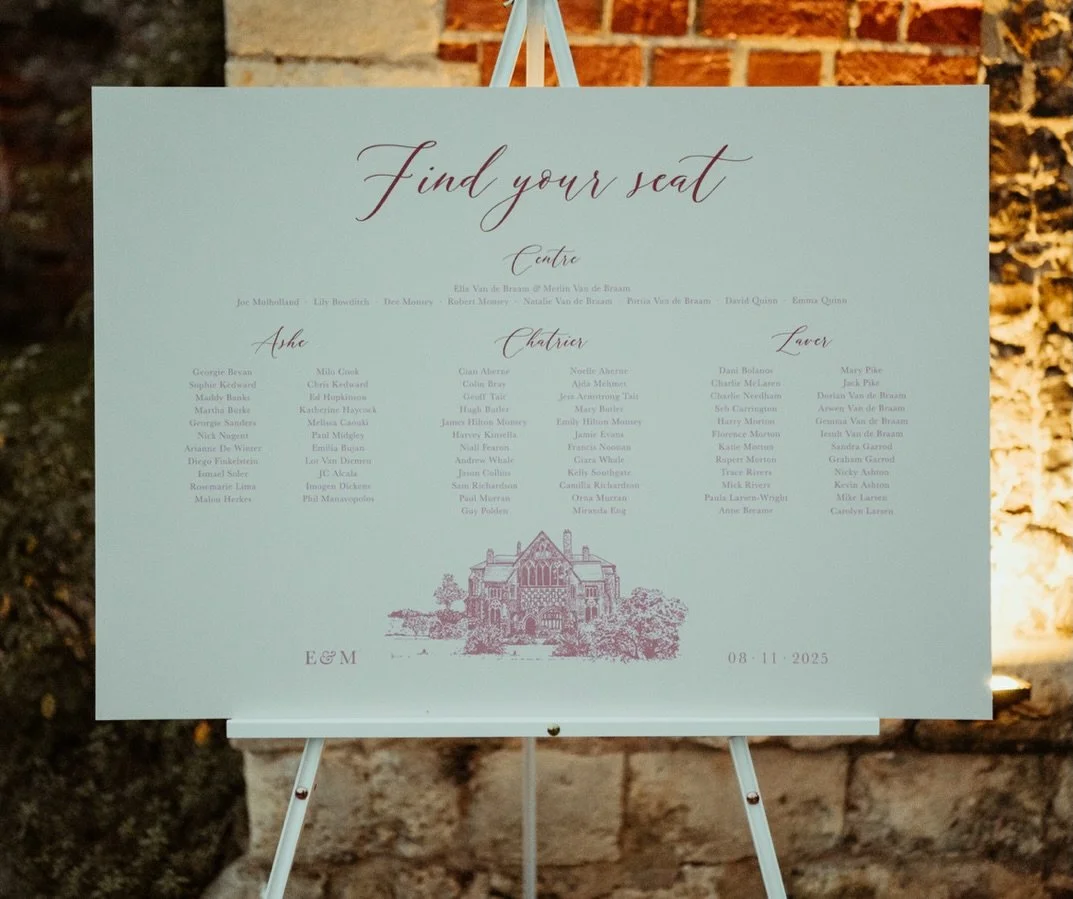 Find your seat
Centre
Ella Van de Braam & Merlin Van de Braam
Joe Mulholland · Lily Bowditch · Dee Monsey · Robert Monsey · Natalie Van de Braam · Portia Van de Braam · David Quinn · Emma Quinn
Ashe
Georgie Bevan
Sophie Kedward
Maddy Banks
Martha Burks
Georgie Sanders
Nick Nugent
Arianne De Winter
Diego Finkelstein
Ismael Soler
Rosemarie Lima
Malou Herkes
Milo Cook
Chris Kedward
Ed Hopkinson
Katherine Haycock
Melissa Casuki
Paul Midgley
Emilia Bujan
Lot Van Diemen
JC Alcala
Imogen Dickens
Phil Manavopolos
Chatrier
Cian Aherne
Colin Bras
Geoff Tait
Hugh Butler
James Hilton Money
Harvey Kinsella
Niall Fearon
Andrew Whale
Jason Collins
Sam Richardson
Paul Murran
Guy Polden
Noelle Aherne
Ajda Mehmet
Jess Armstrong Tait
Mary Butler
Emily Hilton Money
Jamie Evans
Francis Noonan
Ciara Whale
Kelly Southgate
Camilla Richardson
Orna Murran
Miranda Eng
Laver
Dani Bolanos
Charlie McLaren
Charlie Needham
Seb Carrington
Harry Morton
Florence Morton
Katie Morton
Rupert Morton
Trace Rivers
Mick Rivers
Paula Larsen-Wright
Anne Breame
Mary Pike
Jack Pike
Dorian Van de Braam
Arwen Van de Braam
Gemma Van de Braam
Izzah Van de Braam
Sandra Garrod
Graham Garrod
Nicky Ashton
Kevin Ashton
Mike Larsen
Carolyn Larsen
E&M
08·11·2025